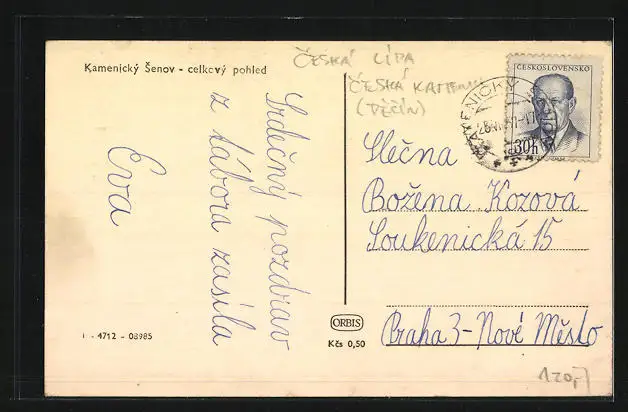 Kamenický Šenov - celkový pohled
Srdečný pozdrav
z tábora zasílá
Eva
I - 4712 - 08985
ORBIS
Kčs 0,50
ČESKÁ LÍPA
ČESKÁ KAMENICE
(DĚČÍN)
ČESKOSLOVENSKO
30h
KAMENICKÝ
Slečna
Božena Kozová
Soukenická 15
Praha 3 - Nové Město
120,-